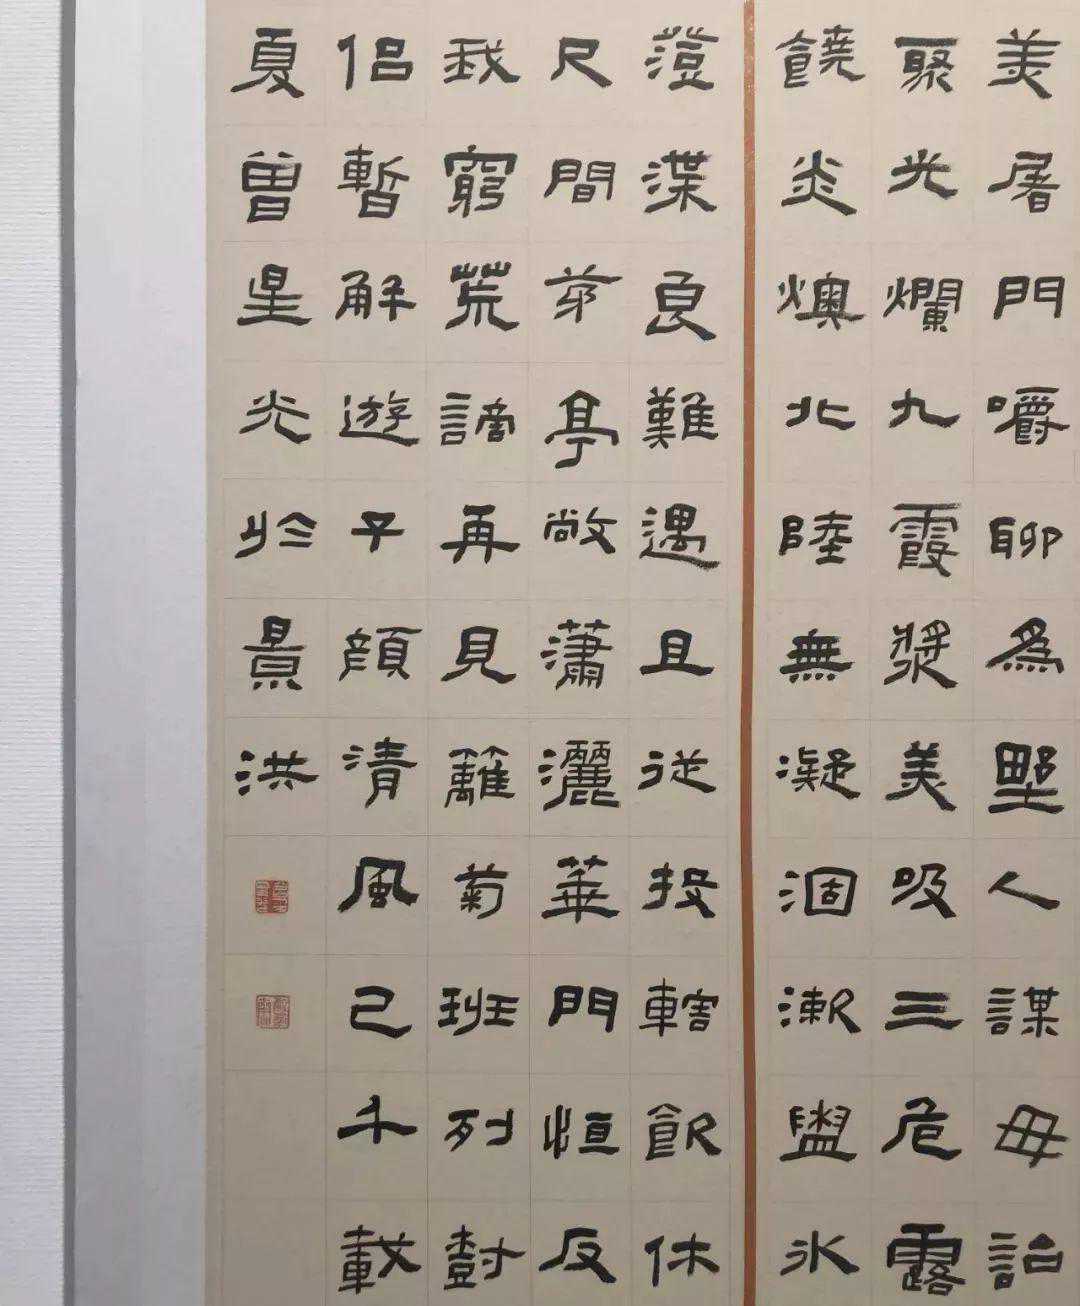 美屠門嚼聊為野人謀毋詒
聚光爛九霞漿美吸三危露
饒炎燠北陸無凝涸漱盥冰
澄渫良難遇且從投轄飲休
尺間茅亭敞瀟灑蓽門恒反
我窮荒謫再見籬菊班列對
侶暫解遊子顏清風已千載
夏曾星光於景洪